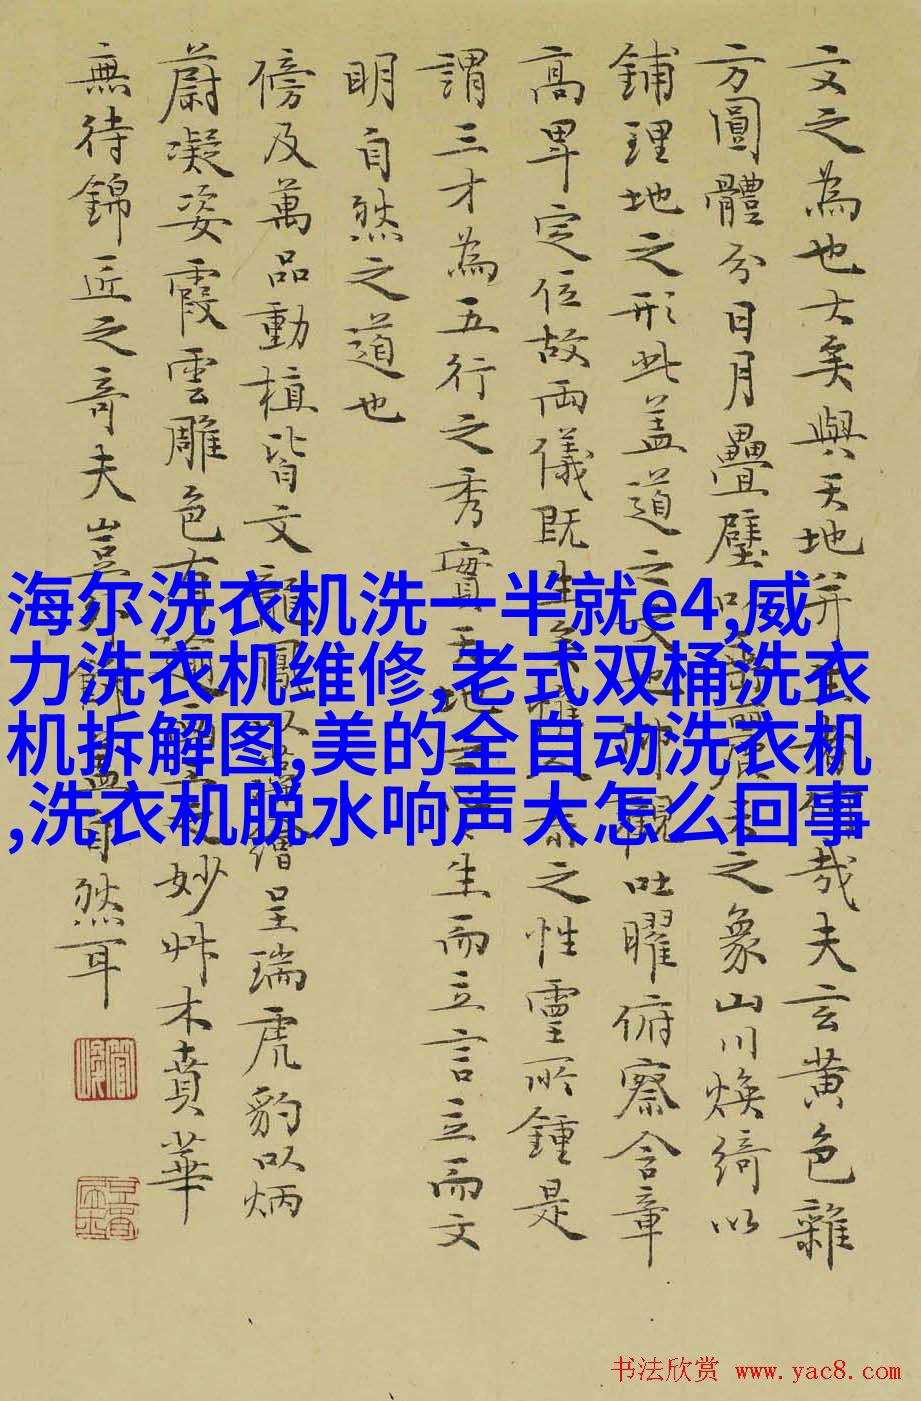 文之為也大矣與天地并生者何哉夫玄黃色雜
方圓體分日月疊璧以垂麗天之象山川煥綺以
鋪理地之形此盖道之文也仰觀吐曜俯察含章
高卑定位故兩儀既生矣惟人參之性靈所鍾是
謂三才為五行之秀實天地之心生而立言立而文
明自然之道也
傍及萬品動植皆文龍鳳以藻繪呈瑞虎豹以炳
蔚凝姿霞雲雕色有踰畫工之妙艸木賁華
無待錦匠之奇夫豈外飾盖自然耳
海尔洗衣机洗一半就e4,威
力洗衣机维修,老式双桶洗衣
机拆解图,美的全自动洗衣机
,洗衣机脱水响声大怎么回事
书法欣赏 www.yac8.com